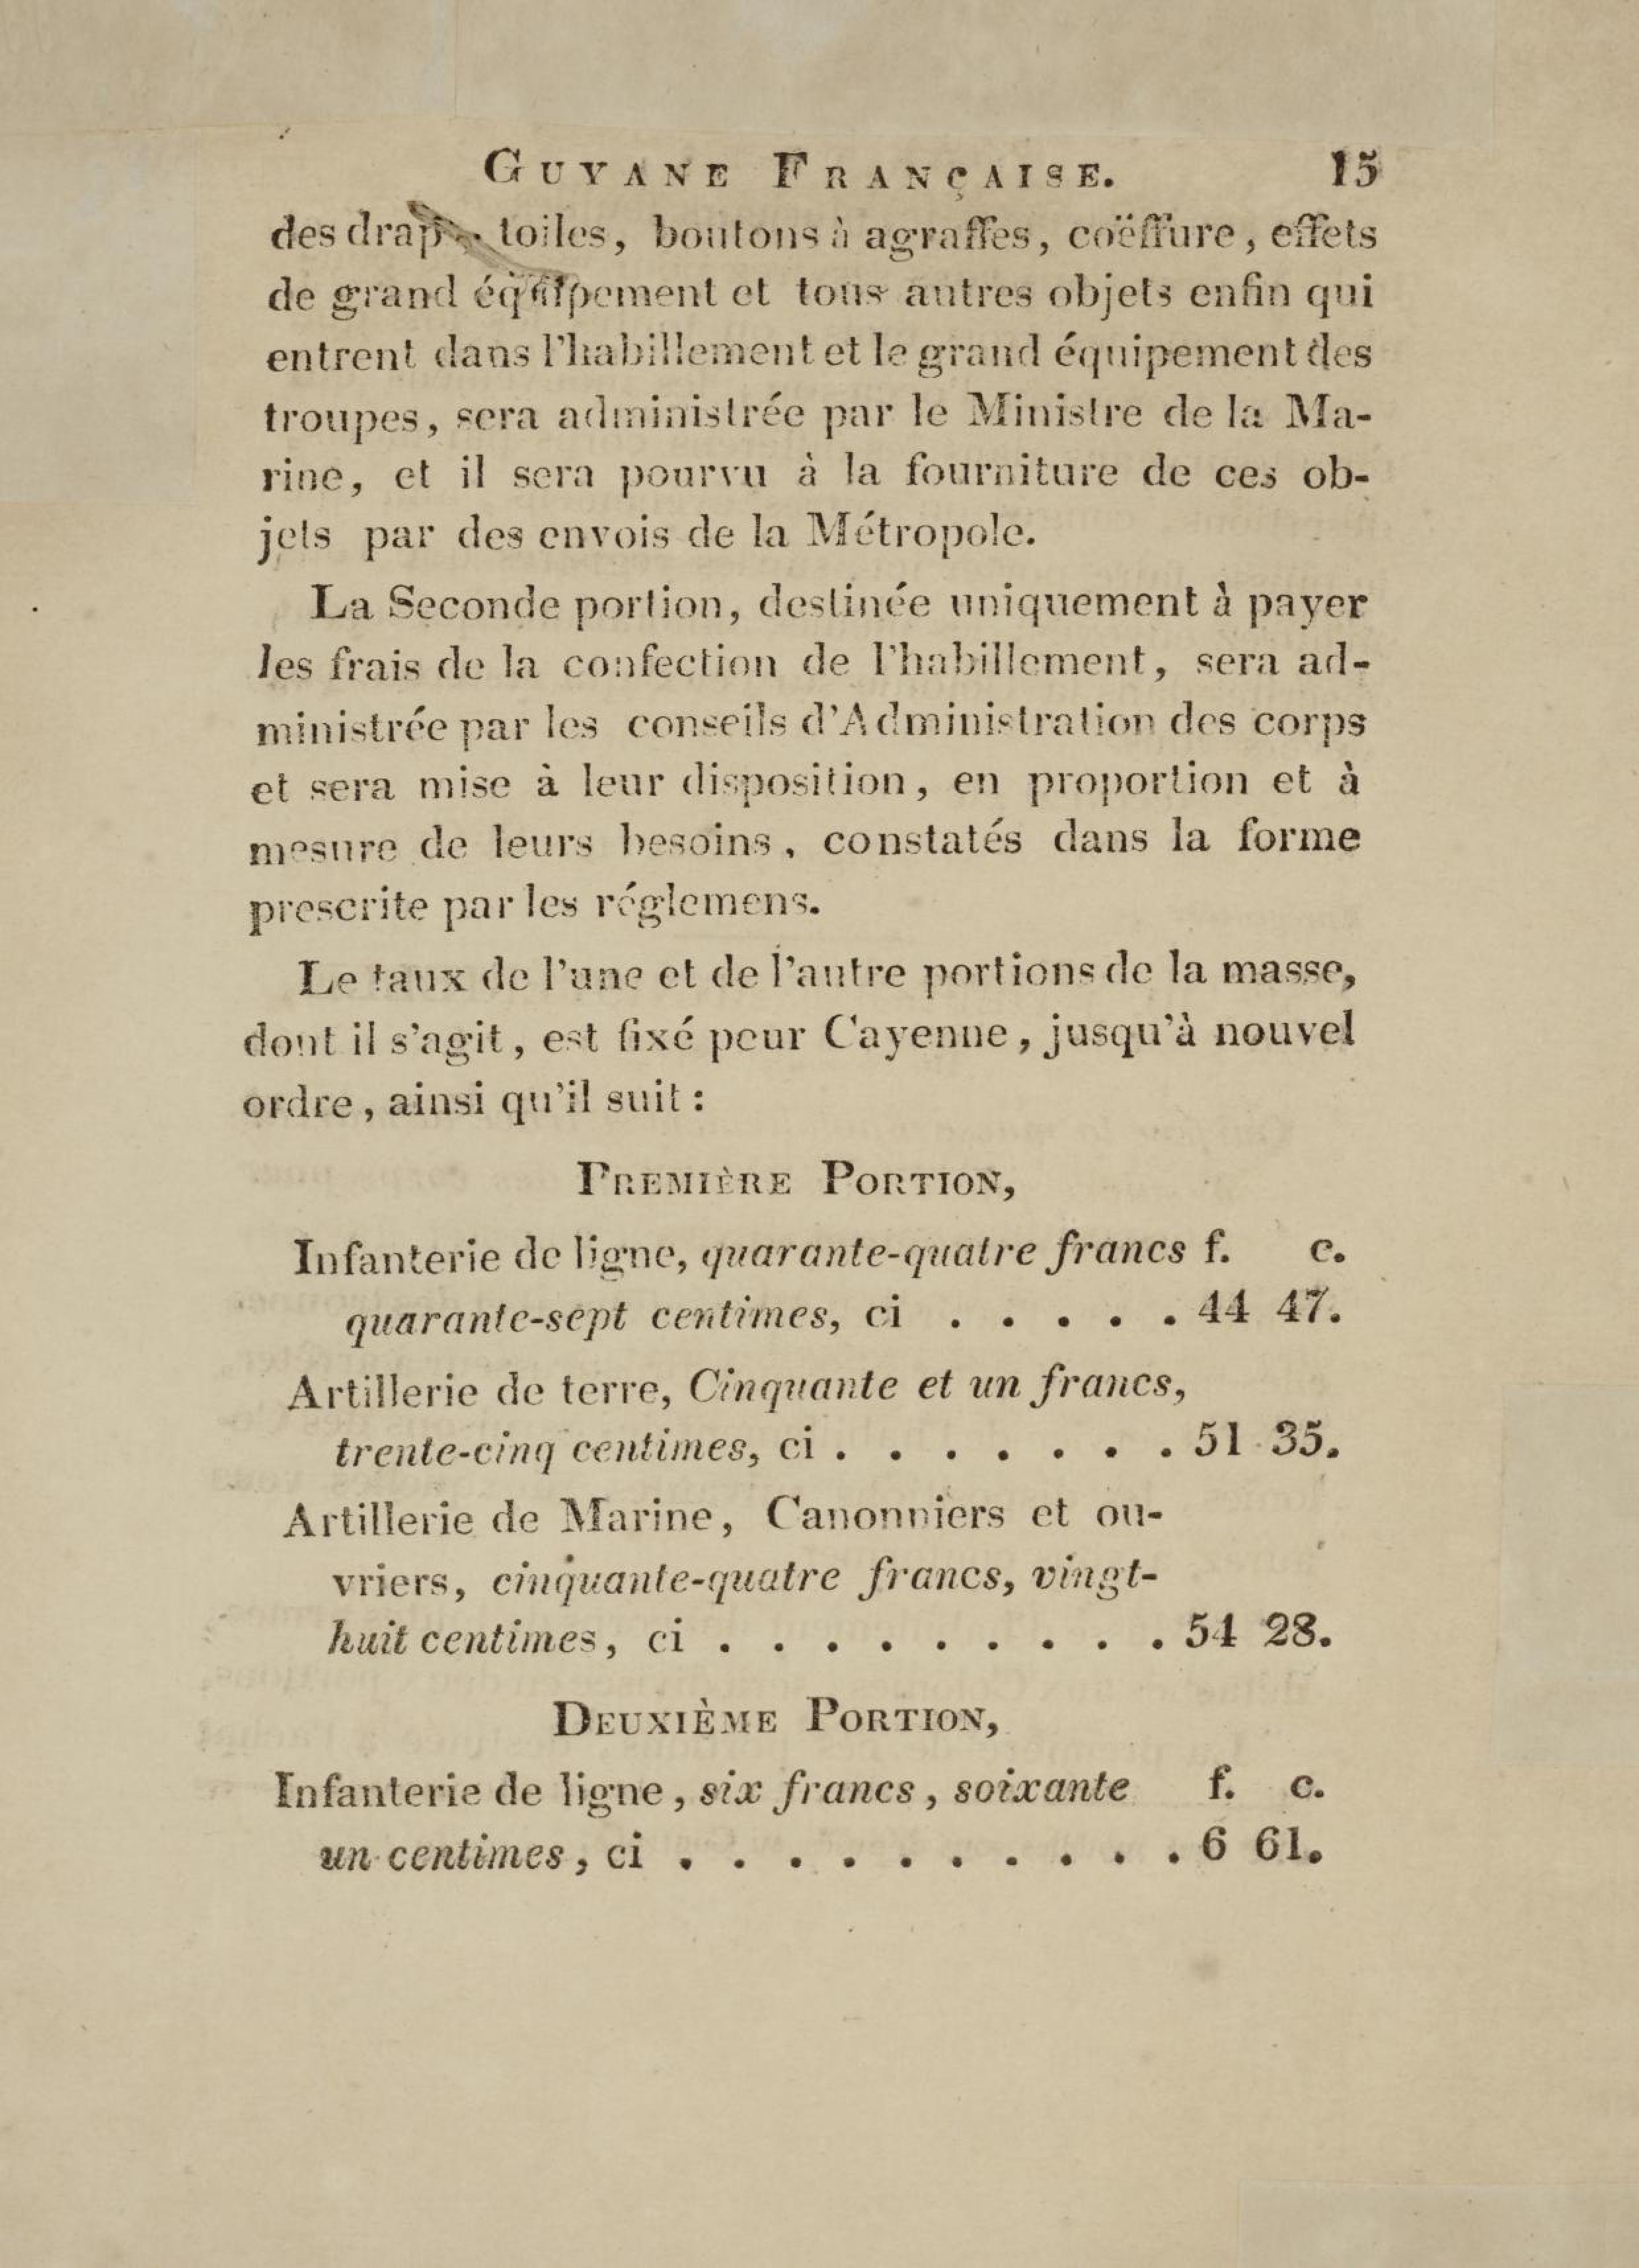 GUYANE FRANÇAISE. 15
des drap toiles, boutons à agraffes, coëffure, effets
de grand équipement et tous autres objets enfin qui
entrent dans l'habillement et le grand équipement des
troupes, sera administrée par le Ministre de la Ma-
rine, et il sera pourvu à la fourniture de ces ob-
jets par des envois de la Métropole.
La Seconde portion, destinée uniquement à payer
les frais de la confection de l'habillement, sera ad-
ministrée par les conseils d'Administration des corps
et sera mise à leur disposition, en proportion et à
mesure de leurs besoins, constatés dans la forme
prescrite par les réglemens.
Le taux de l'une et de l'autre portions de la masse,
dont il s'agit, est fixé pour Cayenne, jusqu'à nouvel
ordre, ainsi qu'il suit :
PREMIÈRE PORTION,
Infanterie de ligne, quarante-quatre francs f. c.
quarante-sept centimes, ci . . . . . 44 47.
Artillerie de terre, Cinquante et un francs,
trente-cinq centimes, ci . . . . . . . 51 35.
Artillerie de Marine, Canonniers et ou-
vriers, cinquante-quatre francs, vingt-
huit centimes, ci . . . . . . . . . 54 28.
DEUXIÈME PORTION,
Infanterie de ligne, six francs, soixante f. c.
un centimes, ci . . . . . . . . . . 6 61.